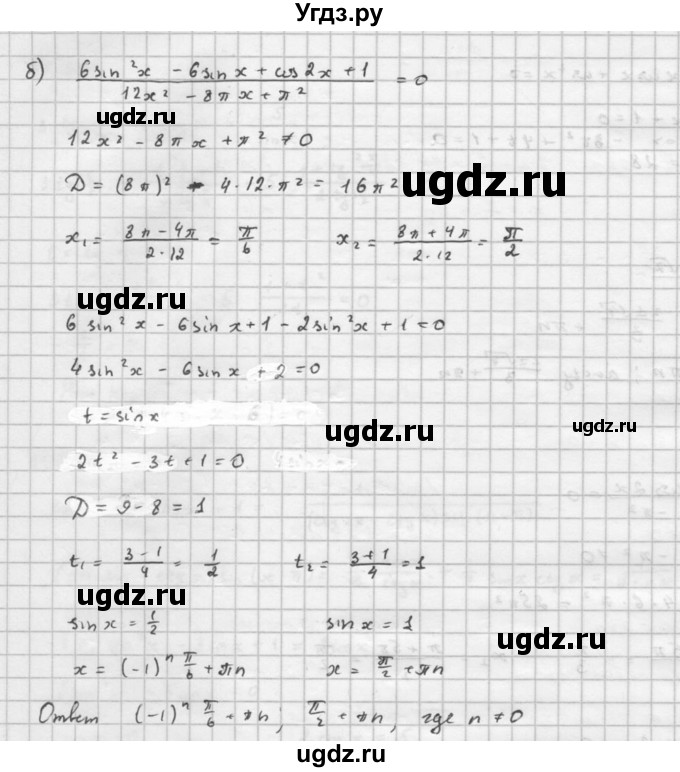 Угдз.ру
б) (6 sin²x − 6 sin x + cos 2x + 1)/(12x² − 8πx + π²) = 0
ugdz.ru
12x² − 8πx + π² ≠ 0
ugdz.ru
D = (8π)² − 4·12·π² = 16π²
x₁ = (8π − 4π)/(2·12) = π/6    x₂ = (8π + 4π)/(2·12) = π/2
ugdz.ru
6 sin²x − 6 sin x + 1 − 2 sin²x + 1 = 0
4 sin²x − 6 sin x + 2 = 0
t = sin x
ugdz.ru ugdz.ru
2t² − 3t + 1 = 0
D = 9 − 8 = 1
t₁ = (3 − 1)/4 = 1/2    t₂ = (3 + 1)/4 = 1
ugdz.ru
sin x = 1/2    sin x = 1
ugdz.ru
x = (−1)ⁿ π/6 + πn    x = π/2 + πn
Ответ (−1)ⁿ π/6 + πn; π/2 + πn, где n ≠ 0
ugdz.ru